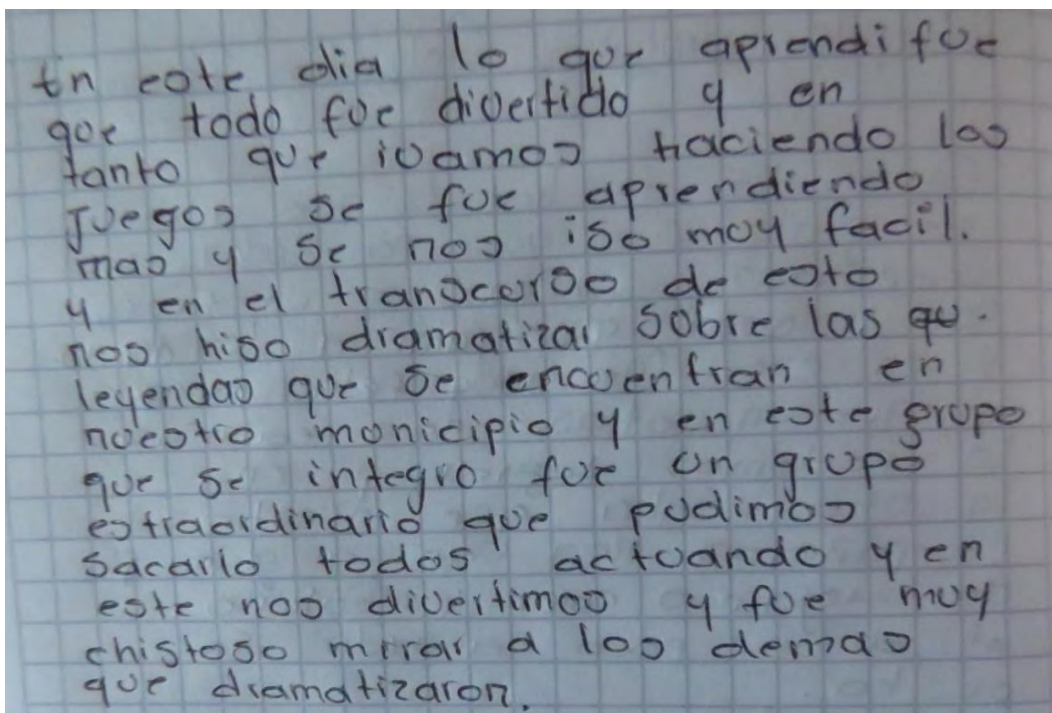 En este dia lo que aprendi fue
que todo fue divertido y en
tanto que ivamos haciendo los
juegos se fue aprendiendo
mas y se nos iso muy facil.
y en el transcurso de esto
nos hiso dramatizar sobre las qu.
leyendas que se encuentran en
nuestro municipio y en este grupo
que se integro fue un grupo
estraordinario que pudimos
sacarlo todos actuando y en
este nos divertimos y fue muy
chistoso mirar a los demas
que dramatizaron.